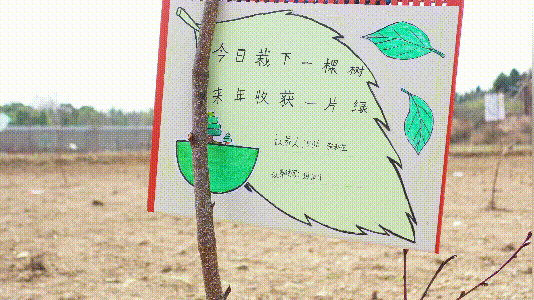 今日栽下一棵树
来年收获一片绿